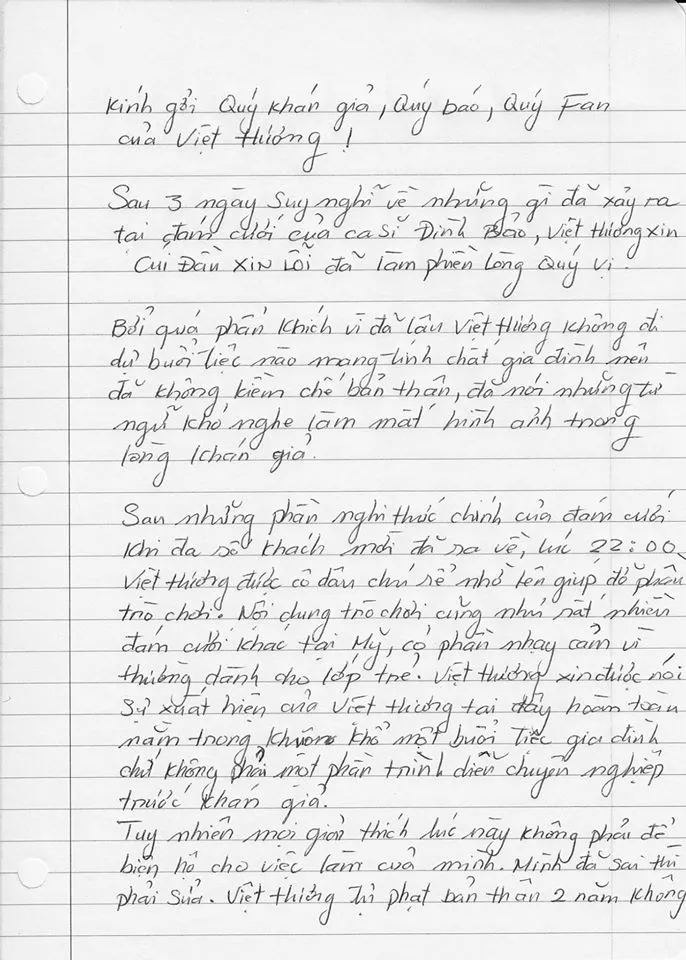 Kính gởi Quý khán giả, Quý báo, Quý Fan
của Việt Hương !
Sau 3 ngày suy nghĩ về những gì đã xảy ra
tại đám cưới của ca sĩ Đình Bảo, Việt Hương xin
Cúi Đầu XIN LỖI đã làm phiền lòng Quý vị.
Bởi quá phấn khích vì đã lâu Việt Hương không đi
dự buổi tiệc nào mang tính chất gia đình nên
đã không kiềm chế bản thân, đã nói những từ
ngữ khó nghe làm mất hình ảnh trong
lòng khán giả.
Sau những phần nghi thức chính của đám cưới
khi đa số khách mời đã ra về, lúc 22:00,
Việt Hương được cô dâu chú rể nhờ lên giúp đỡ phần
trò chơi. Nội dung trò chơi cũng như rất nhiều
đám cưới khác tại Mỹ, có phần nhạy cảm vì
thường dành cho lớp trẻ. Việt Hương xin được nói
sự xuất hiện của Việt Hương tại đây hoàn toàn
nằm trong khuôn khổ một buổi tiệc gia đình
chứ không phải một phần trình diễn chuyên nghiệp
trước khán giả.
Tuy nhiên mọi giải thích lúc này không phải để
biện hộ cho việc làm của mình. Mình đã sai thì
phải sửa. Việt Hương tự phạt bản thân 2 năm không